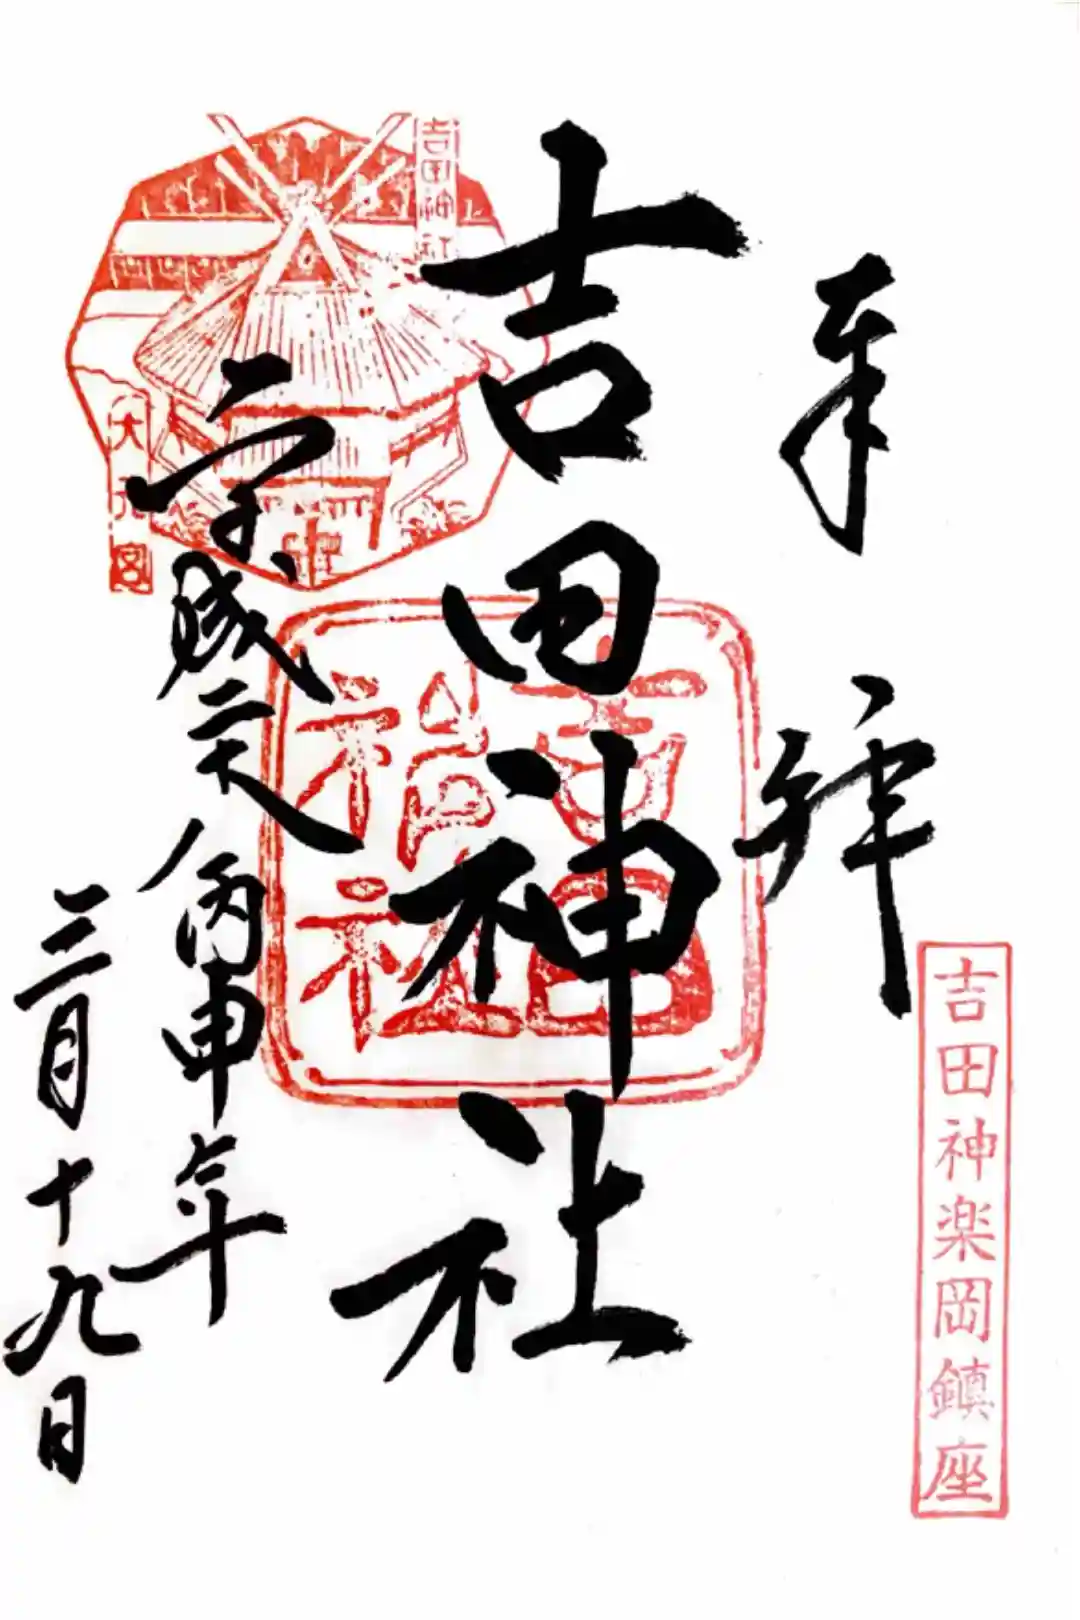 奉拝
吉田神楽岡鎮座
吉田神社
吉田神社
平成二十八丙申年
三月十九日
吉田神社
大元宮